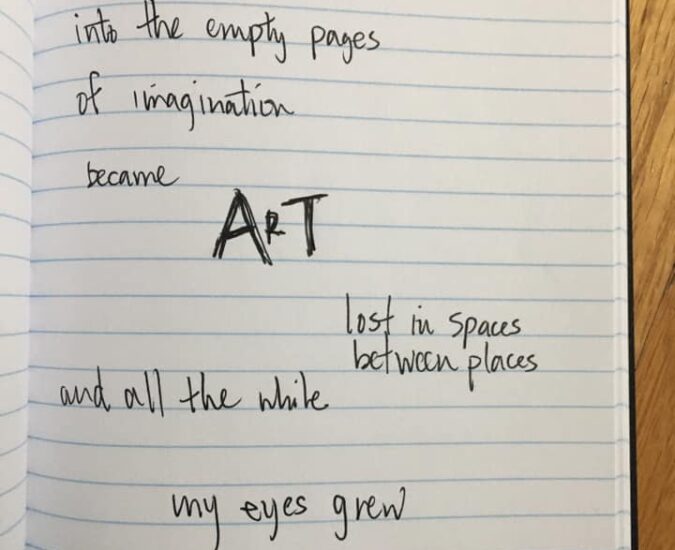 into the empty pages
of imagination
became
ART
lost in spaces
between places
and all the while
my eyes grew